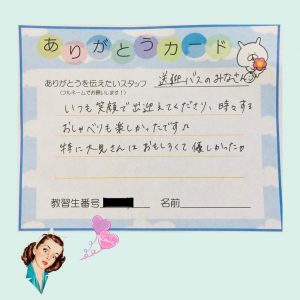 ありがとうカード
ありがとうを伝えたいスタッフ
(フルネームでお願いします！)
送迎バスのみなさん
いつも笑顔で出迎えてくださり、時々する
おしゃべりも楽しかったです♫
特に大見さんはおもしろくて優しかったか
教習生番号 名前